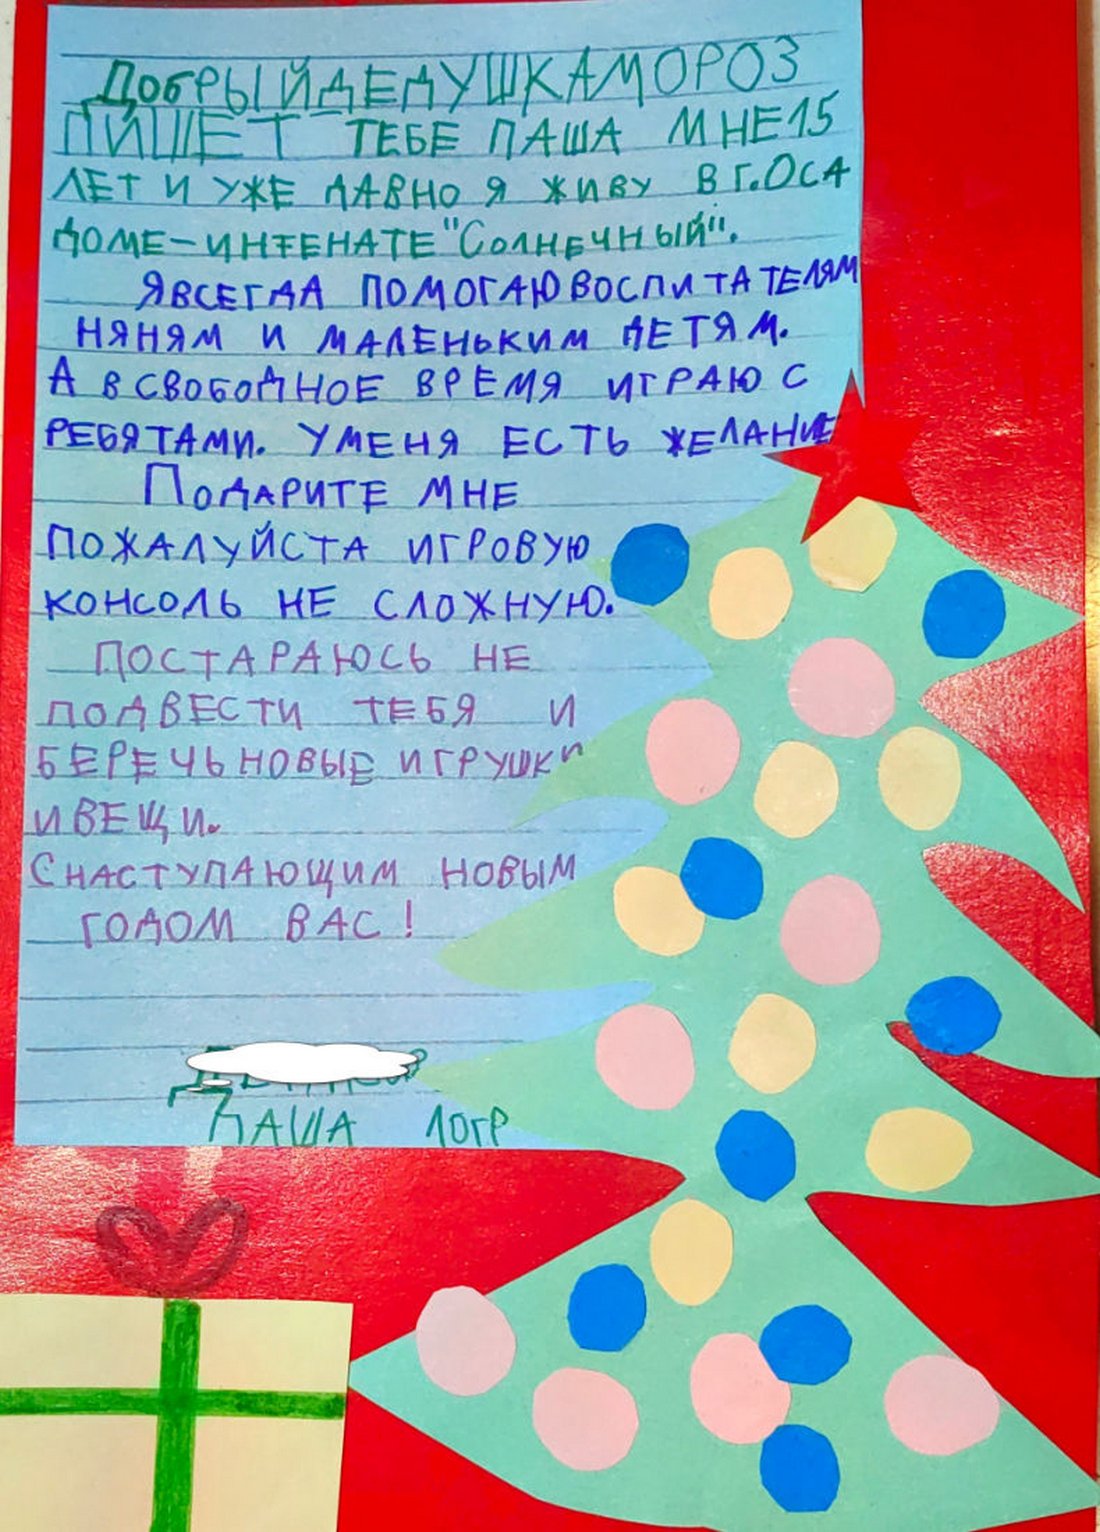 ДОБРЫЙДЕДУШКАМОРОЗ
ПИШЕТ ТЕБЕ ПАША МНЕ15
ЛЕТ И УЖЕ ДАВНО Я ЖИВУ В Г.ОСА
ДОМЕ-ИНТЕНАТЕ "СОЛНЕЧНЫЙ".
ЯВСЕГДА ПОМОГАЮВОСПИТАТЕЛЯМ
НЯНЯМ И МАЛЕНЬКИМ ДЕТЯМ.
А В СВОБОДНОЕ ВРЕМЯ ИГРАЮ С
РЕБЯТАМИ. УМЕНЯ ЕСТЬ ЖЕЛАНИЕ
ПОДАРИТЕ МНЕ
ПОЖАЛУЙСТА ИГРОВУЮ
КОНСОЛЬ НЕ СЛОЖНУЮ.
ПОСТАРАЮСЬ НЕ
ПОДВЕСТИ ТЕБЯ И
БЕРЕЧЬНОВЫЕ ИГРУШКИ
ИВЕЩИ.
СНАСТУПАЮЩИМ НОВЫМ
ГОДОМ ВАС!
ПАША 10ГР